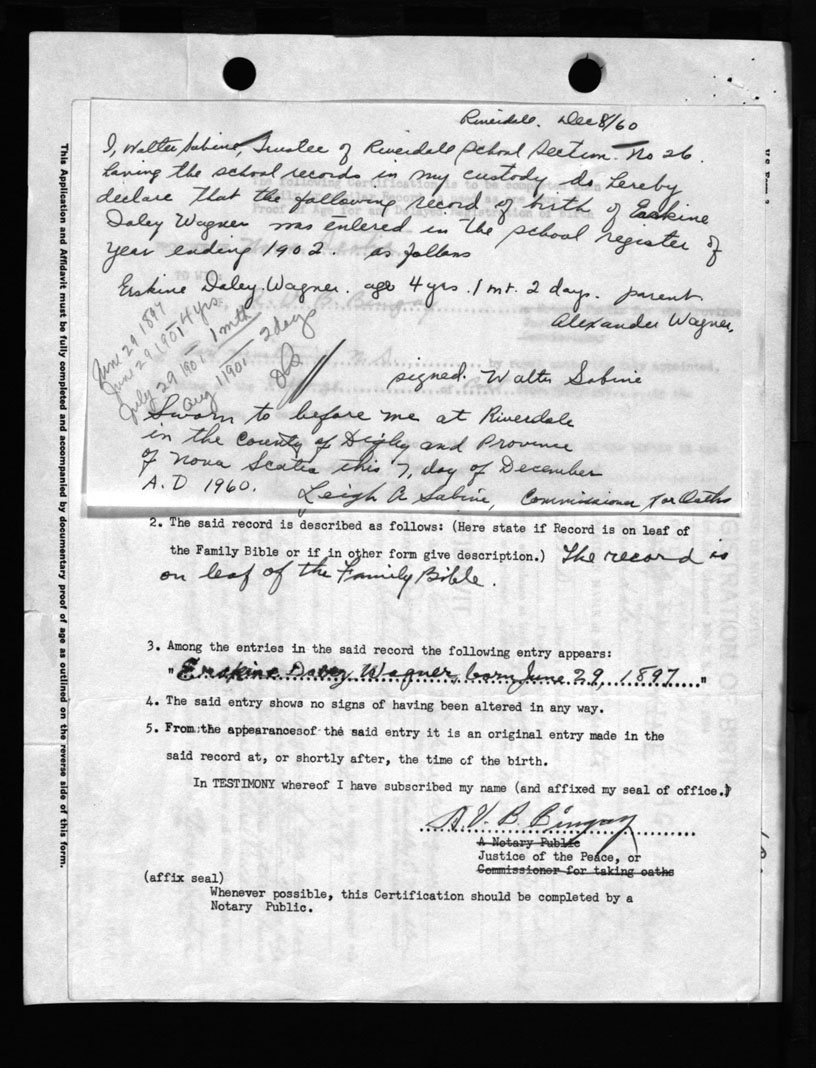 Riverdale. Dec 8/60
I, Walter Sabine, Trustee of Riverdale School Section No 26.
having the school records in my custody do hereby
declare that the following record of birth of Erskine
Daley Wagner was entered in the school register of
year ending 1902. as follows
Erskine Daley Wagner. age 4 yrs. 1 mt. 2 days. parent
Alexander Wagner.
June 29 1897
June 29, 1901 4 yrs
July 29 1901 1 mth
Aug 1 1901 2 days
signed. Walter Sabine
Sworn to before me at Riverdale
in the County of Digby and Province
of Nova Scotia this 7, day of December
A.D 1960. Leigh A Sabine, Commissioner for Oaths
2. The said record is described as follows: (Here state if Record is on leaf of
the Family Bible or if in other form give description.) The record is
on leaf of the Family Bible.
3. Among the entries in the said record the following entry appears:
"Erskine Daley Wagner, born June 29, 1897"
4. The said entry shows no signs of having been altered in any way.
5. From the appearances of the said entry it is an original entry made in the
said record at, or shortly after, the time of the birth.
In TESTIMONY whereof I have subscribed my name (and affixed my seal of office.)
A. V. B. Bingay
A Notary Public
Justice of the Peace, or
Commissioner for taking oaths
(affix seal)
Whenever possible, this Certification should be completed by a
Notary Public.
This Application and Affidavit must be fully completed and accompanied by documentary proof of age as outlined on the reverse side of this form.